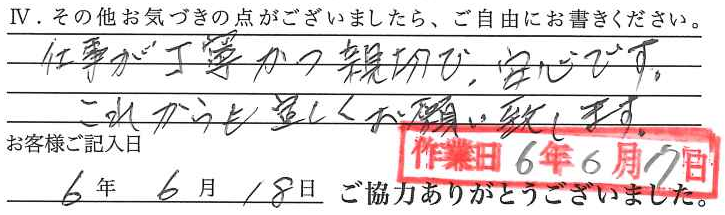 Ⅳ．その他お気づきの点がございましたら、ご自由にお書きください。
仕事が丁寧かつ親切で、安心です。
これからも宜しくお願い致します。
お客様ご記入日
作業日 6年6月17日
6年 6月 18日 ご協力ありがとうございました。